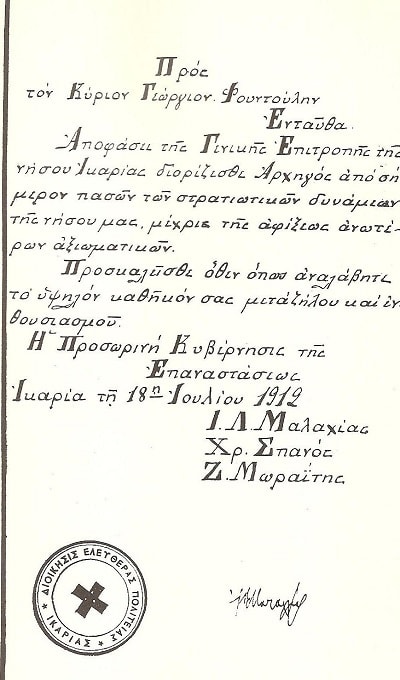 Πρός
τόν Κύριον Γεώργιον Φουντούλην
Ενταύθα.
Αποφάσει της Γενικής Επιτροπής της
νήσου Ικαρίας διορίζεσθε Αρχηγός από σή
μερον πασών των στρατιωτικών δυνάμεων
της νήσου μας, μέχρις της αφίξεως ανωτέ-
ρων αξιωματικών.
Προσκαλείσθε όθεν όπως αναλάβητε
το ύψηλόν καθήκόν σας μετάζήλου καί εν
θουσιασμού.
Η Προσωρινή Κυβέρνησις της
Επαναστάσεως
Ικαρία τη 18η Ιουλίου 1912
Ι. Λ. Μαλαχίας
Χρ. Σπανός
Ζ. Μωραΐτης
ΔΙΟΙΚΗΣΙΣ ΕΛΕΥΘΕΡΑΣ ΠΟΛΙΤΕΙΑΣ
ΙΚΑΡΙΑΣ